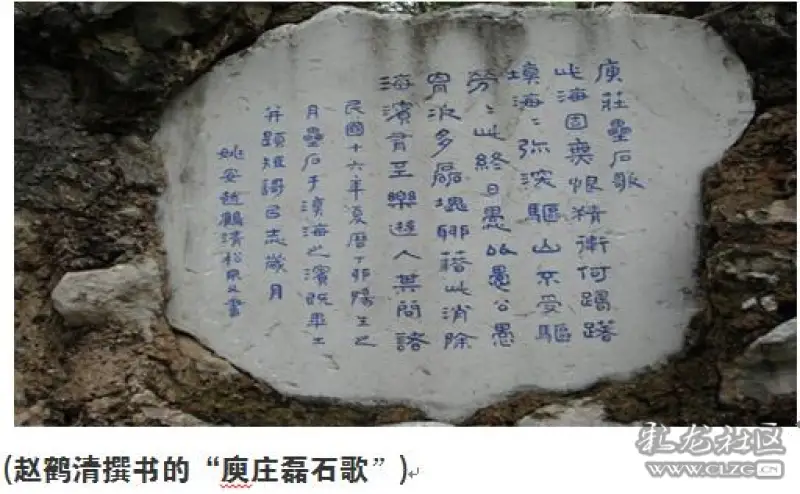 庾莊壘石歌
此海固無恨精衛何躊躇
填海〻弥深驅山不受驅
勞〻此終日愚如愚公愚
胷波多磊塊聊藉此消除
海濱有至樂遊人其問諸
民國十六年夏曆丁卯陽生之
月壘石于滇海之濱既畢工
并題短謌㠯志歲月
姚安趙鶴清松泉父書
(赵鹤清撰书的“庾庄磊石歌”)
彩龙社区
WWW.CLZG.CN